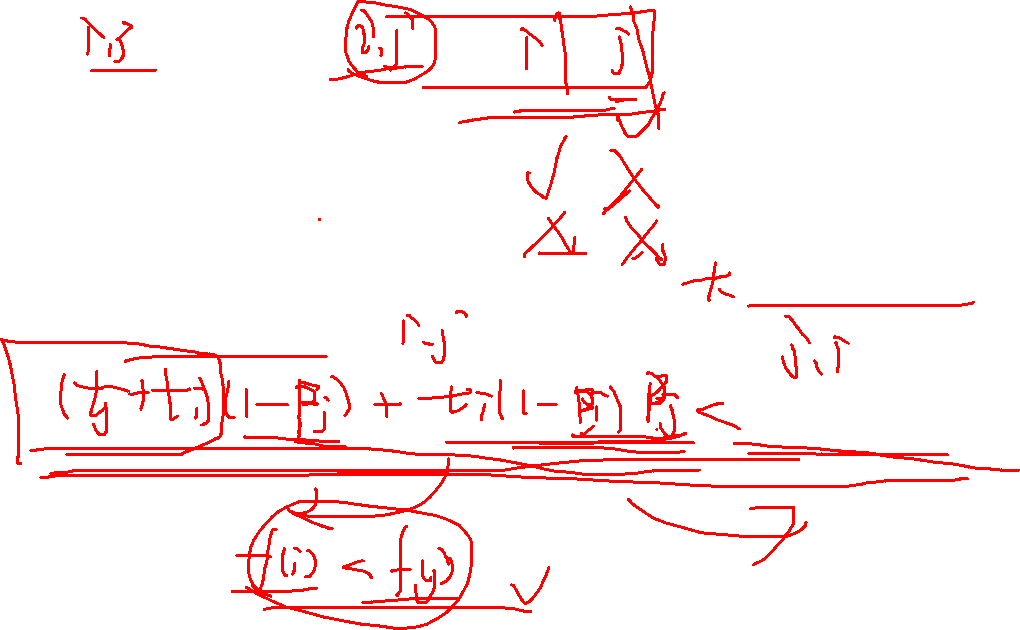 i,j
i,j i j
i,j
j,i
(tj+ti)(1-Pj) + ti(1-Pi)Pj <
f(i) < f(j)